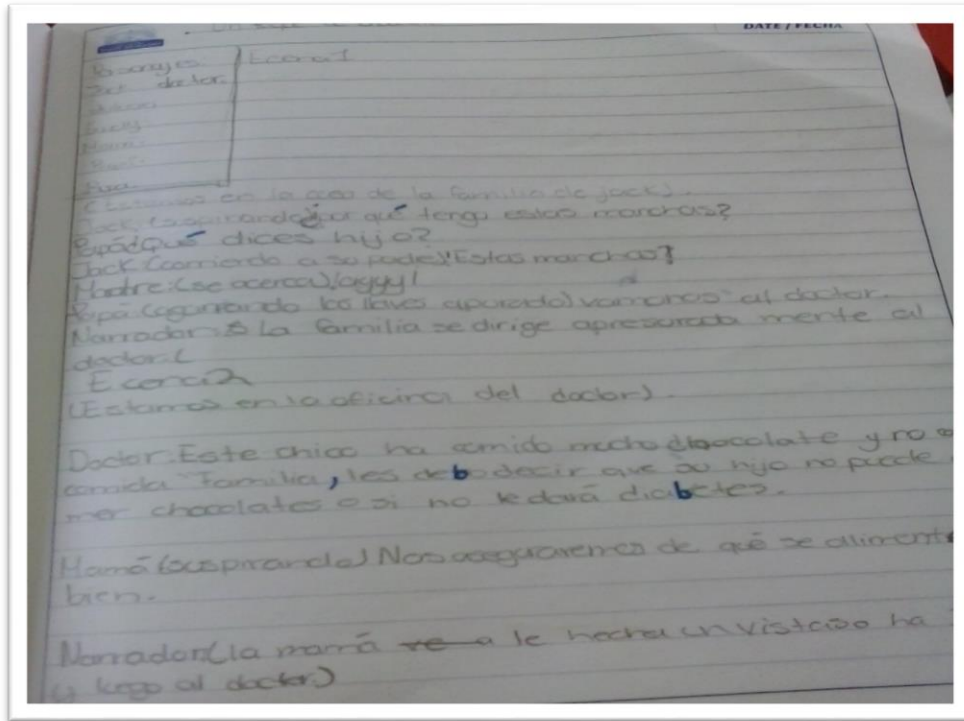 DATE / FECHA
Personajes: Escena 1
doctor.
Jack
Mamá
(Estamos en la casa de la familia de jack).
Jack (suspirando) ¿Por qué tengo estas manchas?
Papá ¿Qué dices hijo?
Jack (corriendo a su padre) ¡Estas manchas!
Madre: (se acerca) ¡agyy!
Papá (agarrando las llaves apurado) vamonos al doctor.
Narrador: La familia se dirige apresurada mente al
doctor. (
Escena 2
(Estamos en la oficina del doctor).
Doctor: Este chico ha comido mucho chocolate y no
comida Familia, les debo decir que su hijo no puede
mer chocolates o si no le dará diabetes.
Mamá (suspirando) Nos aseguraremos de qué se alimente
bien.
Narrador (la mamá a le hecha un vistaso ha
y luego al doctor)